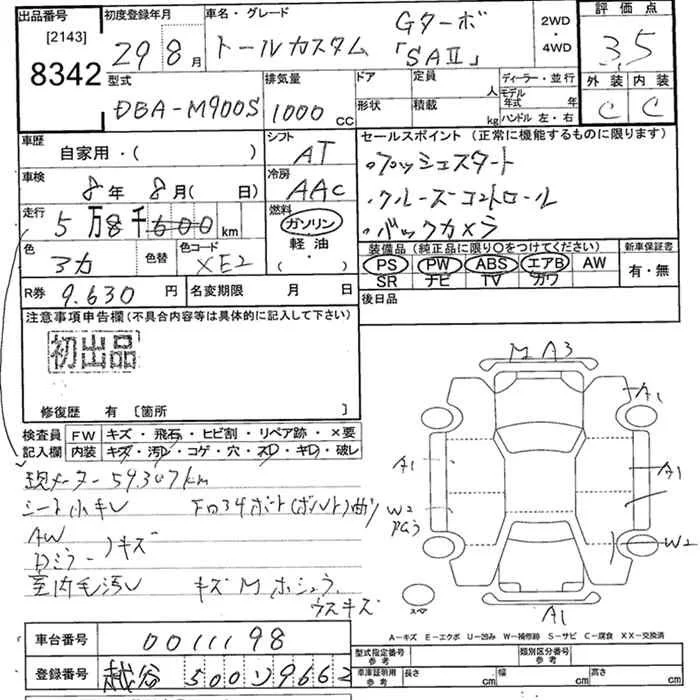 出品番号
[2143]
8342
初度登録年月
29 8 月
車名・グレード
トールカスタム
Gターボ
「SAⅡ」
2WD
・
4WD
評価点
3.5
外装 内装
C C
型式
DBA-M900S
排気量
1000 CC
ドア
形状
定員 人
積載 kg
ディーラー・並行
モデル年式 年
ハンドル 左・右
車歴
自家用・( )
シフト
AT
セールスポイント (正常に機能するものに限ります)
・プッシュスタート
・クルーズコントロール
・バックカメラ
車検
8年 8月 ( 日)
冷房
AAC
走行
5万8千600 km
燃料
ガソリン
軽油
・( )
色
色替
色コード
XE2
装備品 (純正品に限り〇をつけてください)
PS PW ABS エアB AW
SR ナビ TV カワ
新車保証書
有・無
R券
9.630 円
名変期限 月 日
後日品
注意事項申告欄(不具合内容等は具体的に記入して下さい)
初出品
修復歴 有 〔箇所 〕
検査員
記入欄
FW キズ・飛石・ヒビ割・リペア跡・×要
内装 キズ・汚D・コゲ・穴・スD・キD・破レ
現メーター 59307km
シート小キレ
AW
Dミラー キズ
室内毛汚レ
キズM
ウスキズ
M A3
A1
A1
A1
W2
W2
A1
A-キズ E-エクボ U-凹み W-補修跡 S-サビ C-腐食 XX-交換済
車台番号
0011198
登録番号
越谷 500 9662
型式指定番号
参考
類別区分番号
参考
車庫証明用
参考
長さ cm 幅 cm 高さ cm